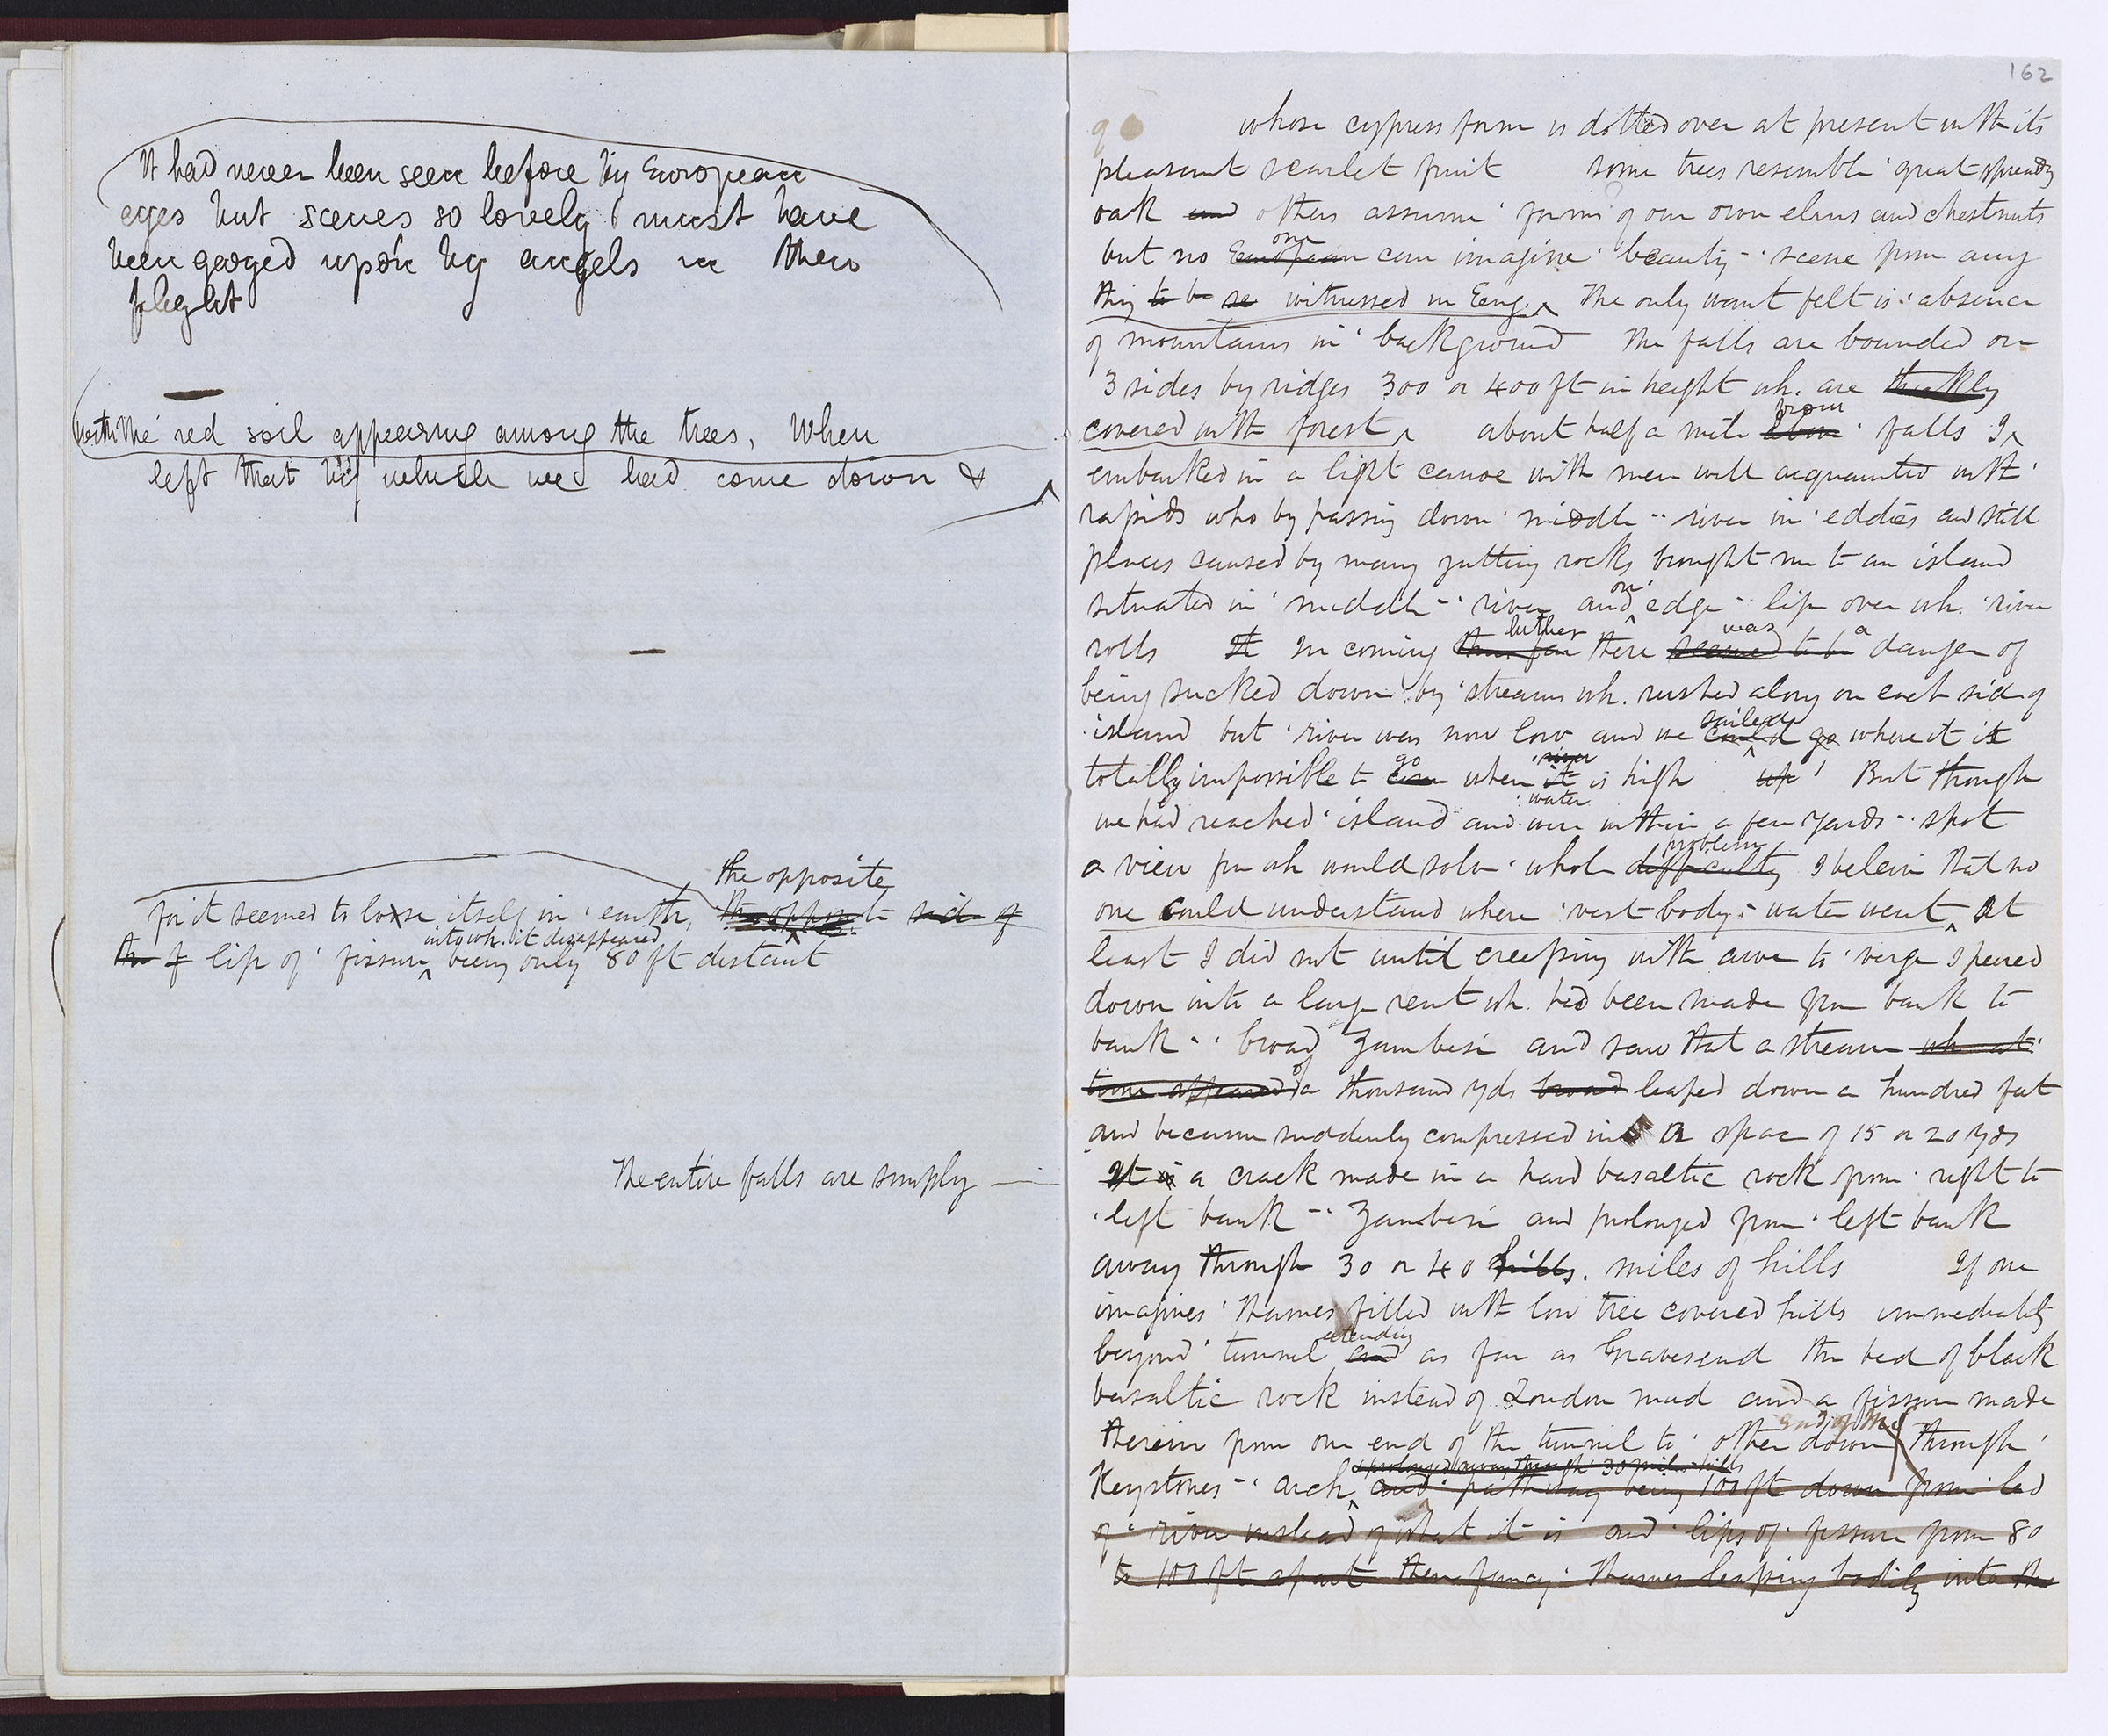 It had never been seen before by European
eyes but scenes so lovely must have
been gazed upon by angels in their
flight
with the red soil appearing among the trees, When
left that by which we had come down &
the opposite
for it seemed to lose itself in ' earth, the opposite side of
the f lip of ' fissure being only 80 ft distant
into wh. it disappeared
The entire falls are simply —
162
whose cypress form is dotted over at present with its
pleasant scarlet fruit some trees resemble ' great spreadg
oak and others assume ' forms of our own elms and chestnuts
one
but no European can imagine ' beauty -' scene from any
thing to be se witnessed in Eng. The only want felt is ' absence
of mountains in ' background The falls are bounded on
3 sides by ridges 300 or 400 ft in height wh. are thickly
from
covered with forest about half a mile above ' falls I
embarked in a light canoe with men well acquainted with '
rapids who by passing down ' middle -' river in ' eddies and still
places caused by many jutting rocks brought me to an island
on '
situated in ' middle -' river and edge -' lip over wh. ' river
hither was a
rolls It In coming thus far there seemed to be danger of
being sucked down by ' streams wh. rushed along on each side of
sailed
' island but ' river was now low and we could go where it is
go ' river
totally impossible to come when it is high up ' But though
' water
we had reached ' island and were within a few yards -' spot
problem
a view from wh would solve ' whole difficulty I beleive that no
one could understand where ' vast body -' water went At
least I did not until creeping with awe to ' verge I peered
down into a large rent wh. had been made from bank to
bank -' broad Zambesi and saw that a stream wh at '
of
time appeared a thousand yds broad leaped down a hundred feet
and became suddenly compressed into a space of 15 or 20 yds
It is a crack made in a hard basaltic rock from ' right to
' left bank -' Zambesi and prolonged from ' left bank
away through 30 or 40 hills. miles of hills If one
imagines ' Thames filled with low tree covered hills immediately
extending
beyond ' tunnel and as far as Gravesend the bed of black
basaltic rock instead of London mud and a fissure made
end of the
therein from one end of the tunnel to ' other down through '
& prolonged away through 30 miles hills
Keystones -' arch and ' pathway being 100 ft down from ' bed
of ' river instead of what it is and ' lips of ' fissure from 80
to 100 ft apart then fancy ' Thames leaping bodily into the